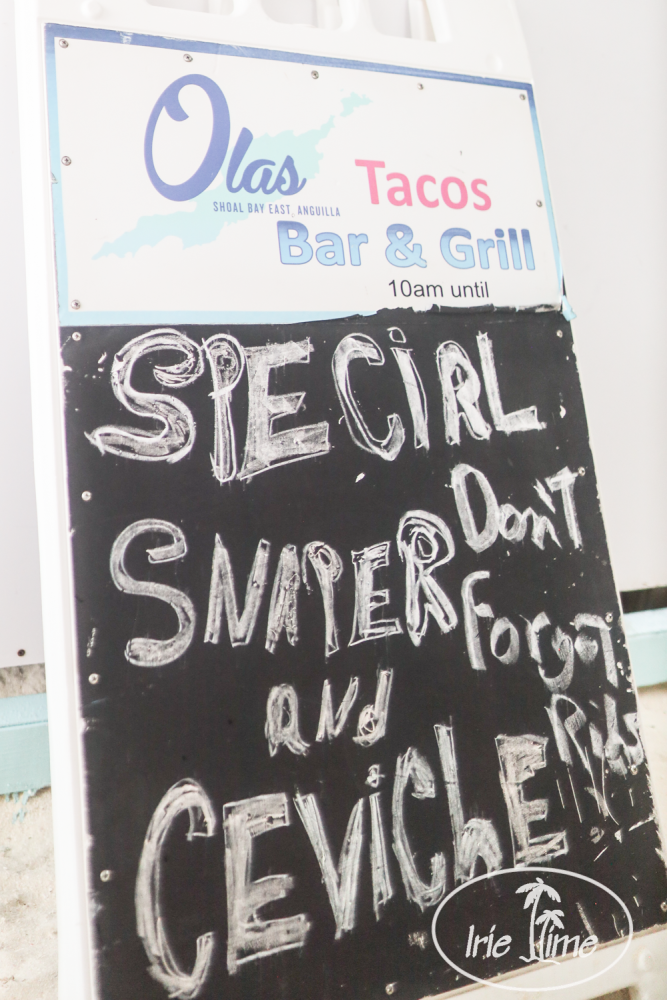 Olas
SHOAL BAY EAST, ANGUILLA
Tacos
Bar & Grill
10am until
SPECIAL
SNAPER
AND
CEVICHE
Don't
Forgot
Ribs
Irie Time